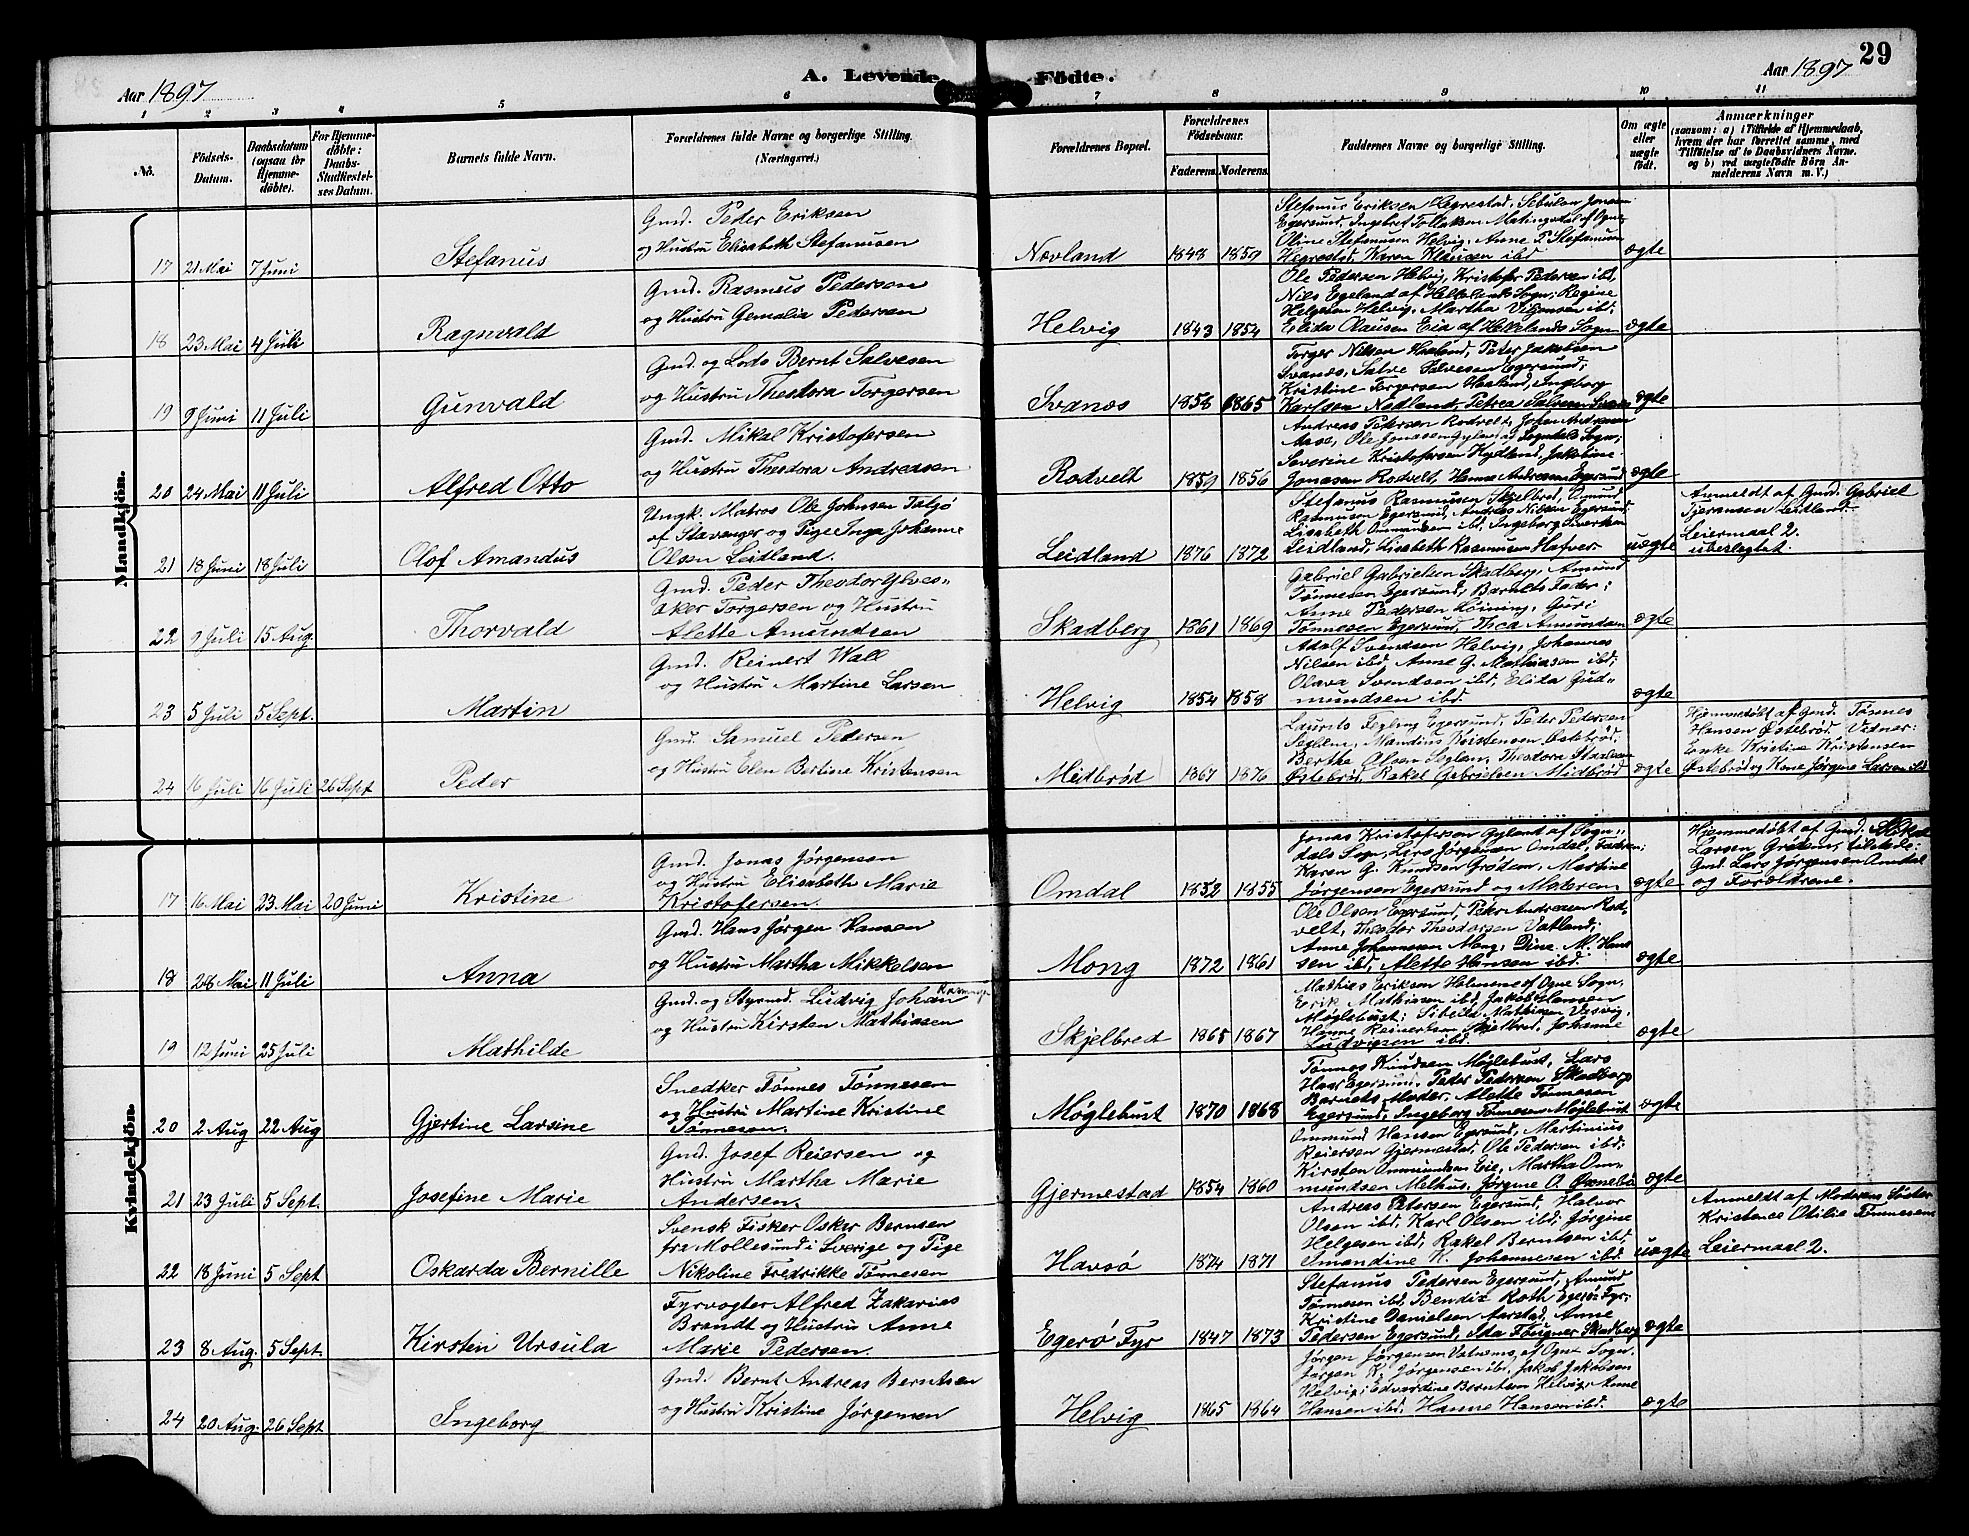 29
A. Levende Födte.
Aar 1897
Aar 1897
1 2 3 4 5 6 7 8 9 10 11
No.
Födsels-
Datum.
Daabsdatum
(ogsaa for
Hjemme-
döbte).
For Hjemme-
döbte:
Daabs-
Stadfæstel-
ses Datum.
Barnets fulde Navn.
Forældrenes fulde Navne og borgerlige Stilling.
(Næringsvei.)
Forældrenes Bopæl.
Forældrenes
Födselsaar.
Faderens. Moderens.
Faddernes Navne og borgerlige Stilling.
Om ægte
eller
uægte
födt.
Anmærkninger
(saasom: a) i Tilfælde af Hjemmedaab,
hvem der har forrettet samme, med
Tilföielse af to Daabsvidners Navne,
og b) ved uægtefödte Börn An-
melderens Navn m. V.)
Mandkjön.
17 21 Mai 7 Juni
Stefanus
Gmd. Peder Eriksen
og Hustru Elisabeth Stefanusen
Nævland 1848 1859
Stefanus Eriksen Hegrestad,
Egersund, Ingebret Tollaksen af Ogne
Oline Stefanusen Helvig, Anne P. Stefanusen
Hegrestad, Karen Klausen ibd
ægte
18 23 Mai 4 Juli
Ragnvald
Gmd. Rasmus Pederson
og Hustru Gemalia Pedersen
Helvig 1843 1854
Ole Pedersen Helvig, Kristofer Pedersen ibd,
Nils Egeland af Hellelands Sogn; Regine
Helgesen Helvig, Martha ibd;
Elida Olausen Eia af Hellelands Sogn
ægte
19 9 Juni 11 Juli
Gunvald
Gmd. og Lods Bernt Salvesen
og Hustru Theodora Torgersen
Svanes 1858 1865
Torger Nilsen Haaland, Peter Jakobsen
Svanes, Salve Salvesen Egersund;
Kristine Torgersen Haaland, Ingborg
Karlsen Nodland, Petrea Salvesen Svanes
ægte
20 24 Mai 11 Juli
Alfred Otto
Gmd. Mikal Kristofersen
og Hustru Theodora Andreasen
Rodvelt 1859 1856
Andreas Petersen Rodvelt, Johan Andreasen
Aase, Ole Jonassen Gyland af Sogndals Sogn;
Severine Kristofersen Hydland, Jakobine
Jonasen Rodvelt, Hanna Andresen Egersund
ægte
21 18 Juni 18 Juli
Olof Amandus
Ungk. Matros Ole Johnsen Taljø
af Stavanger og Pige Inga Johanne
Olsen Leidland.
Leidland 1876 1872
Stefanus Rasmusen Skjelbred, Omund
Rasmusen Egersund, Andreas Nilsen Egersund,
Lisabeth Ommundsen ibd, Ingeborg Sivertsen
Leidland, Lisabeth Rasmusen Hafver
uægte
Anmeldt af Gmd. Gabriel
Leidland.
Leiermaal 2.
ubeslægtet.
22 9 Juli 15 Aug.
Thorvald
Gmd. Peder Theodor Ylves-
aker Torgersen og Hustru
Alette Amundsen
Skadberg 1861 1869
Gabriel Gabrielsen Skadberg, Amund
Tønnesen Egersund, Barnets Fader;
Anne Pedersen Loining, Guri
Tønnesen Egersund, Thea Amundsen
ægte
23 5 Juli 5 Sept.
Martin
Gmd. Reinert Wall
og Hustru Martine Larsen
Helvig 1854 1858
Adolf Svendsen Helvig, Johannes
Nilsen ibd, Anne G. Mathiasen ibd;
Olava Svendsen ibd, Elida Gud-
mundsen ibd.
ægte
24 16 Juli 16 Juli 26 Sept
Peder
Gmd. Samuel Pedersen
og Hustru Elen Bertine Kristensen
Midbrød 1867 1876
Laurits Egersund, Peder Pedersen
Seglem, Mandius Kristensen Østebrød;
Berthe Olsen Seglem, Theodora
Østebrød, Rakel Gabrielsen Midbrød
ægte
Hjemmedøbt af Gmd. Tønnes
Hansen Østebrød. Vidner:
Enke Kristine Kristensen
Østebrød og Kone Jørgine Larsen ibd
Kvindekjön.
17 16 Mai 23 Mai 20 Juni
Kristine
Gmd. Jonas Jørgensen
og Hustru Elisabeth Marie
Kristofersen.
Omdal 1852 1855
Jonas Kristofersen Gyland af Sogn-
dals Sogn, Lars Jørgensen Omdal, Faderen;
Karen G. Knudsen Grøtem, Martine
Jørgensen Egersund og Moderen
ægte
Hjemmedøbt af Gmd.
Larsen Grøtem, tilstede:
Gmd. Lars Jørgensen Omdal
og Forældrene.
18 28 Mai 11 Juli
Anna
Gmd. Hans Jørgen Hansen
og Hustru Martha Mikkelsen
Mong 1872 1861
Ole Olsen Egersund, Peter Andreasen Rod-
velt, Theodor Theodorsen Vatland;
Anne Johannesen Mong, Dine M. Han-
sen ibd, Alette Hansen ibd.
ægte
19 12 Juni 25 Juli
Mathilde
Gmd. og Styrmd. Ludvig Johan Rasmus
og Hustru Kirsten Mathiasen
Skjelbred 1865 1867
Mathias Eriksen af Ogne Sogn,
Erik Mathiasen ibd, Jakob Hansen
Møglebust; Sibella Mathiasen Vesvig,
Hanne Reinertsen Skjelbred, Johanne
Ludvigsen ibd.
ægte
20 2 Aug 22 Aug
Gjertine Larsine
Snedker Tønnes Tønnesen
og Hustru Martine Kristine
Tønnesen.
Møglebust 1870 1868
Tønnes Knudsen Møglebust, Lars
Egersund, Peder Pedersen Skadberg
Barnets Moder, Alette Tønnesen
Egersund, Ingeborg Tønnesen Møglebust
ægte
21 23 Juli 5 Sept.
Josefine Marie
Gmd. Josef Reiersen og
Hustru Martha Marie
Andersen.
Gjermestad 1854 1860
Ommund Hansen Egersund, Martinius
Reiersen Gjermestad, Ole Pedersen ibd;
Kirsten Ommundsen Eie, Martha Om-
mundsen Melhus, Jørgine O.
ægte
22 18 Juni 5 Sept
Oskarda Bernille
Svensk Fisker Oskar Bernsen
fra Mollesund i Sverige og Pige
Nikoline Fredrikke Tønnesen
Havsø 1874 1871
Andreas Petersen Egersund, Halvor
Olsen ibd, Karl Olsen ibd, Jørgine
Helgesen ibd, Rakel Berntsen ibd,
Amandine K. Johannesen ibd.
uægte
Anmeldt af Moderens Søster
Kristence Otilie Tønnesen
Leiermaal 2.
23 8 Aug. 5 Sept.
Kirstin Ursula
Fyrvogter Alfred Zakarias
Brandt og Hustru Anne
Marie Pedersen.
Egerø Fyr 1847 1873
Stefanus Pedersen Egersund, Amund
Tønnesen ibd, Bendix Roth Egerø Fyr;
Kristine Danielsen Aarstad, Anne
Pedersen Egersund, Ida Fougner Skadberg
ægte
24 20 Aug. 26 Sept
Ingeborg
Gmd. Bernt Andreas Berntsen
og Hustru Kristine Jørgensen
Helvig 1865 1864
Jørgen Jørgensen af Ogne Sogn,
Jørgen K. Jørgensen ibd, Jakob Jakobsen
Helvig; Edvardine Berntsen Helvig, Anne
Hansen ibd, Hanne Hansen ibd.
ægte